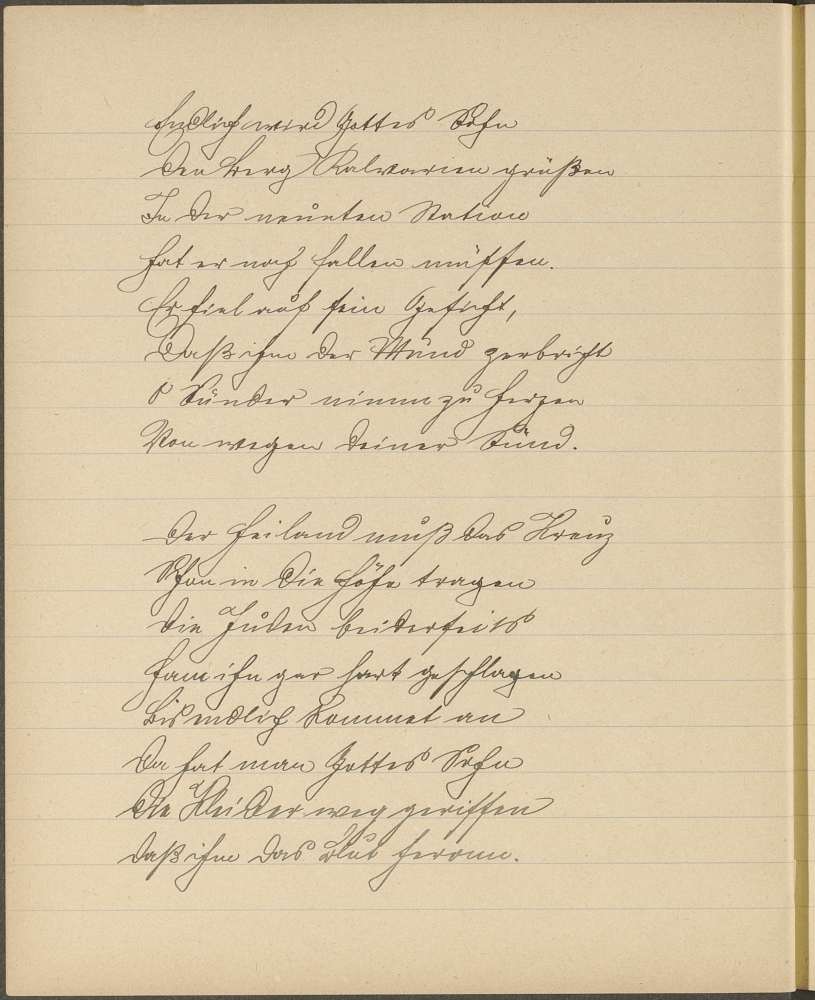 Endlich wird Gottes Sohn
den Berg Kalvarien grüßen
In der neunten Station
hat er noch fallen müssen.
Er fiel auf sein Gesicht,
Daß ihm der Mund zerbricht
O Sünder nimm zu Herzen
Von wegen deiner Sünd.
Der Heiland muß das Kreuz
Schon in die Höhe tragen
die Juden beiderseits
ham ihn gar hart geschlagen
Bis endlich kommet an
Da hat man Gottes Sohn
die Kleider weg gerissen
daß ihm das Blut